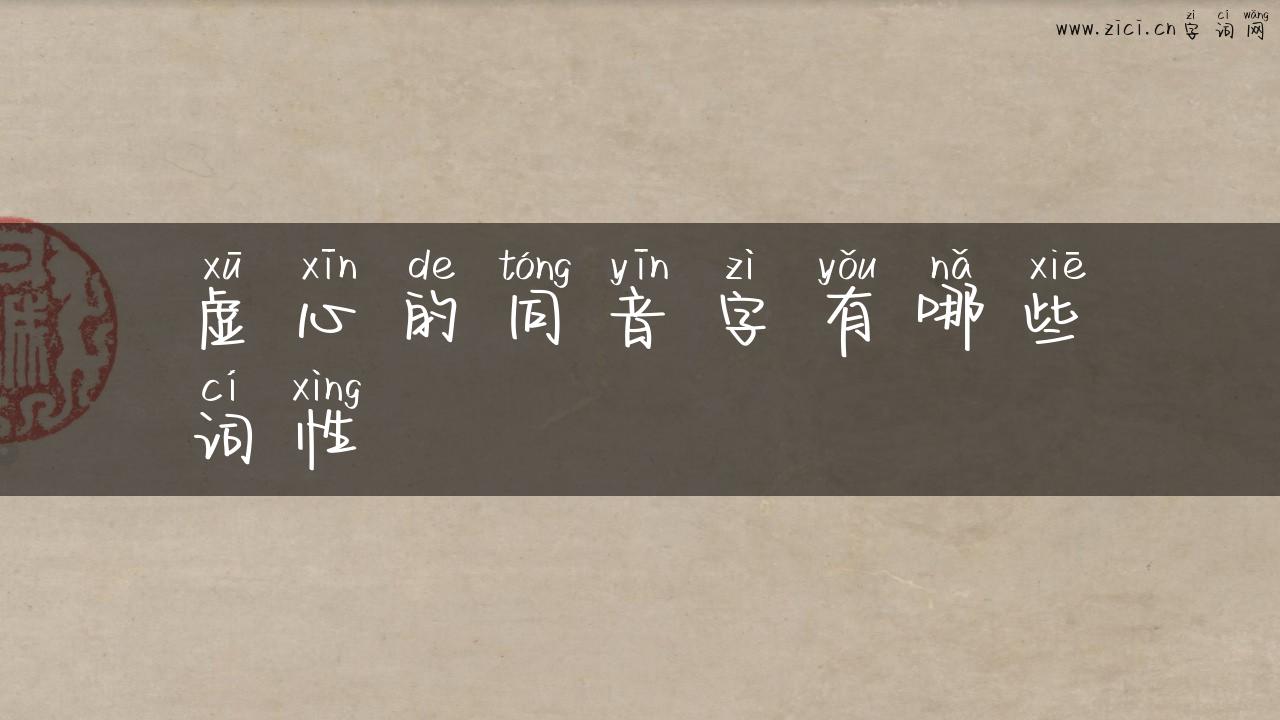 zì cí wǎng
www.zici.cn 字词网
xū xīn de tóng yīn zì yǒu nǎ xiē
虚心的同音字有哪些
cí xìng
词性